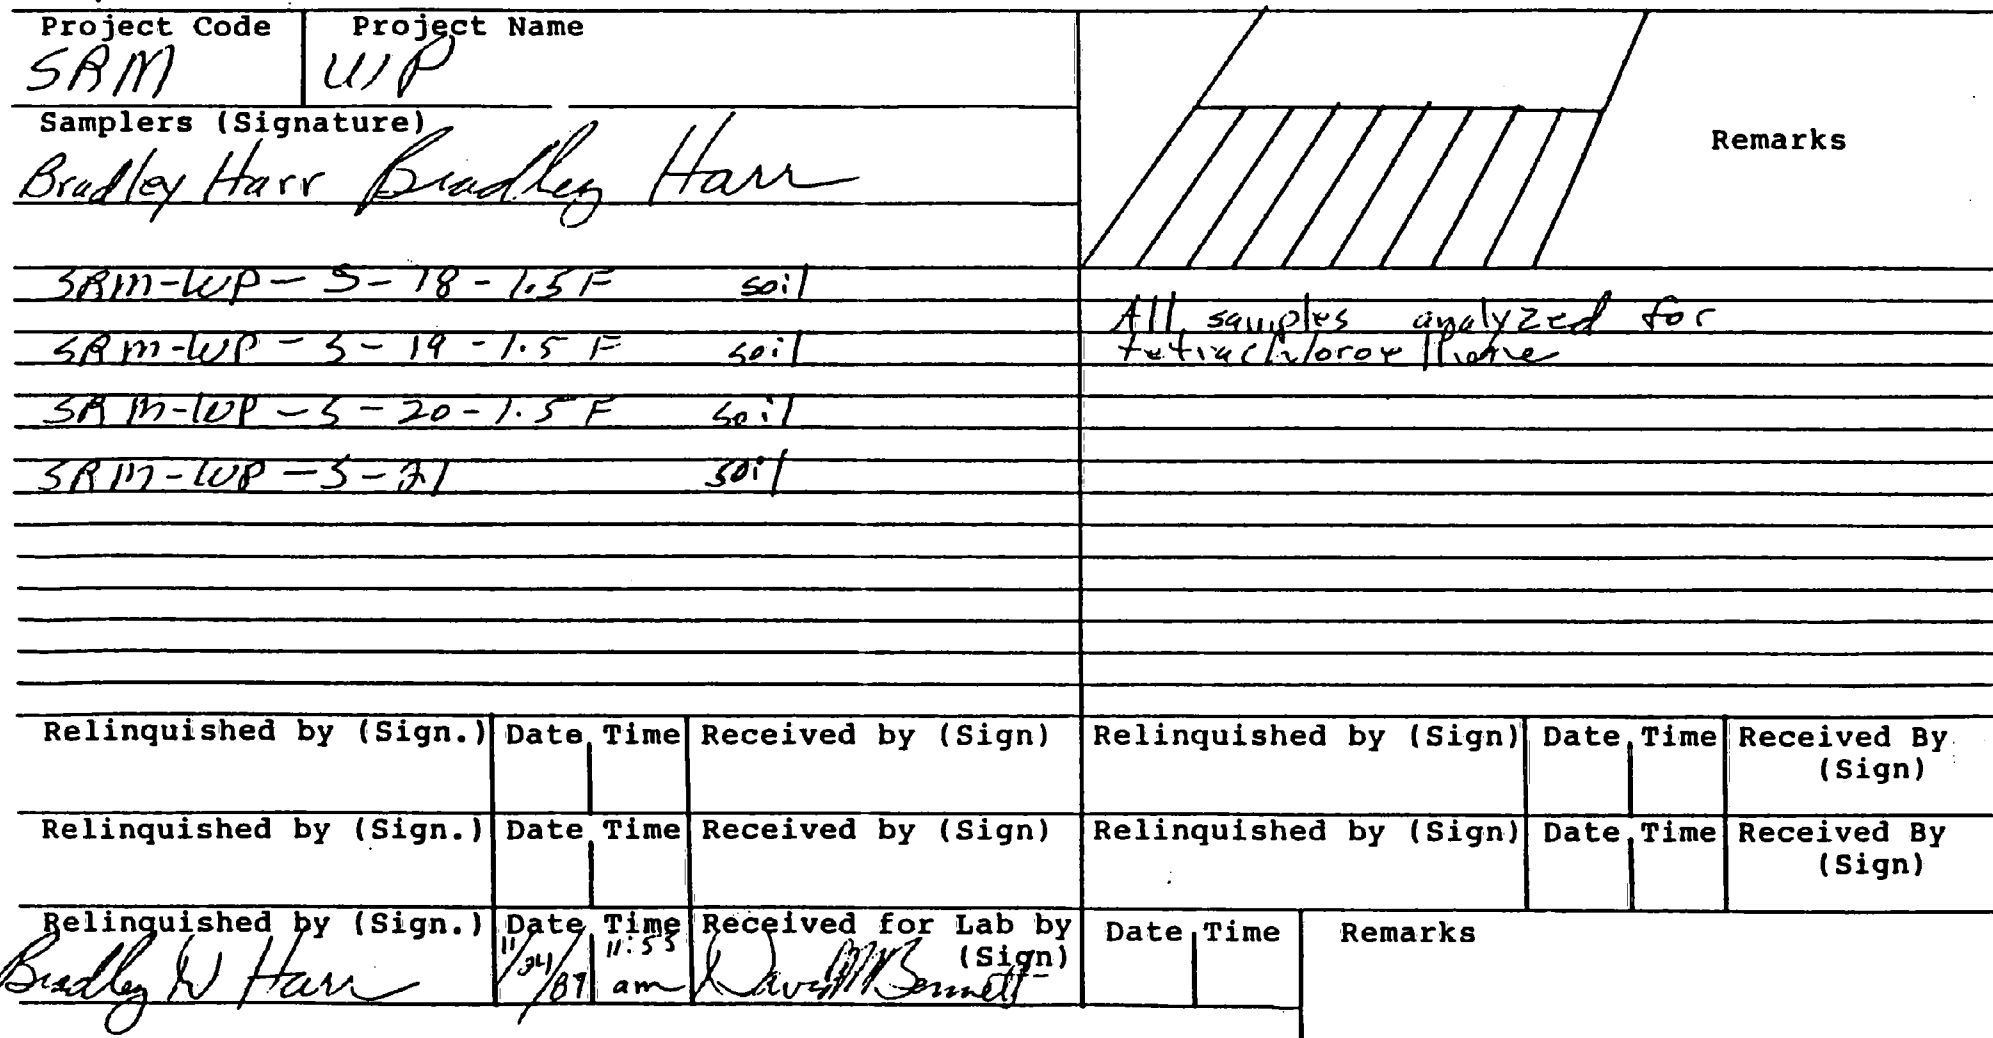 Project Code Project Name
SRM WP
Samplers (Signature)
Bradley Harr Bradley Harr
Remarks
SRM-WP-S-18-1.5F soil
All samples analyzed for
SRM-WP-S-19-1.5F soil
tetrachloroethene
SRM-WP-S-20-1.5F soil
SRM-WP-S-21 soil
Relinquished by (Sign.) Date Time Received by (Sign) Relinquished by (Sign) Date Time Received By
(Sign)
Relinquished by (Sign.) Date Time Received by (Sign) Relinquished by (Sign) Date Time Received By
(Sign)
Relinquished by (Sign.) Date Time Received for Lab by Date Time Remarks
(Sign)
Bradley W Harr 11/24/87 11:55 am David M Bennett